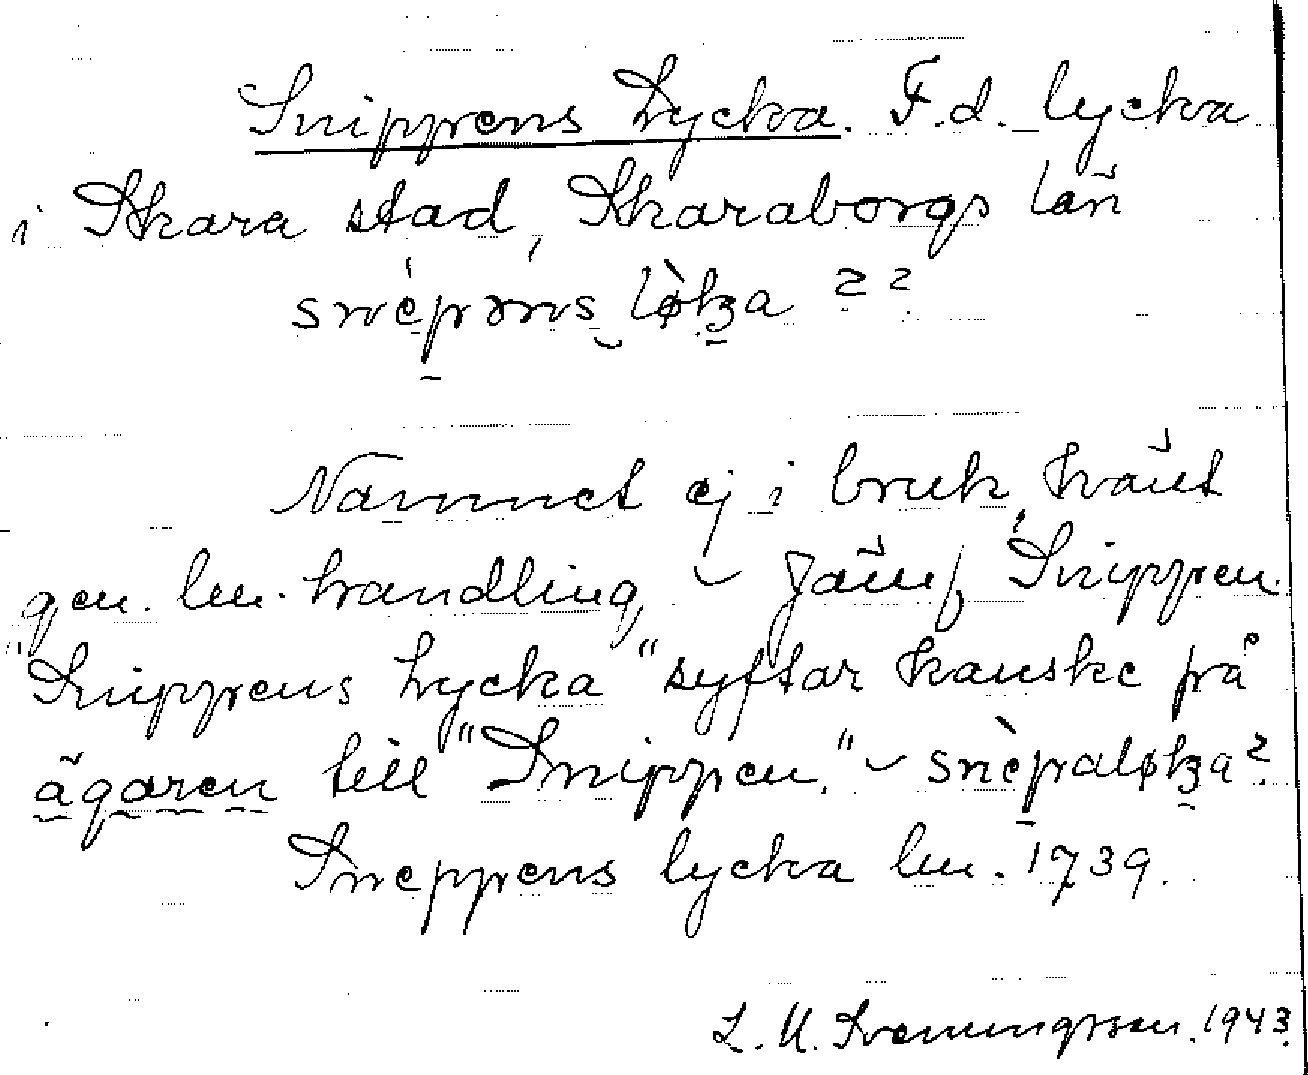 Snippens Lycka. F.d. lycka
i Skara stad, Skaraborgs län
snépəns løka ??
Namnet ej i bruk, känt
gen. lm. handling ~ Jämf Snippen.
"Snippens Lycka" syftar kanske på
ägaren till "Snippen." ~ snèpaløka?
Sneppens lycka lm. 1739.
L. U. Svenungsson. 1943.